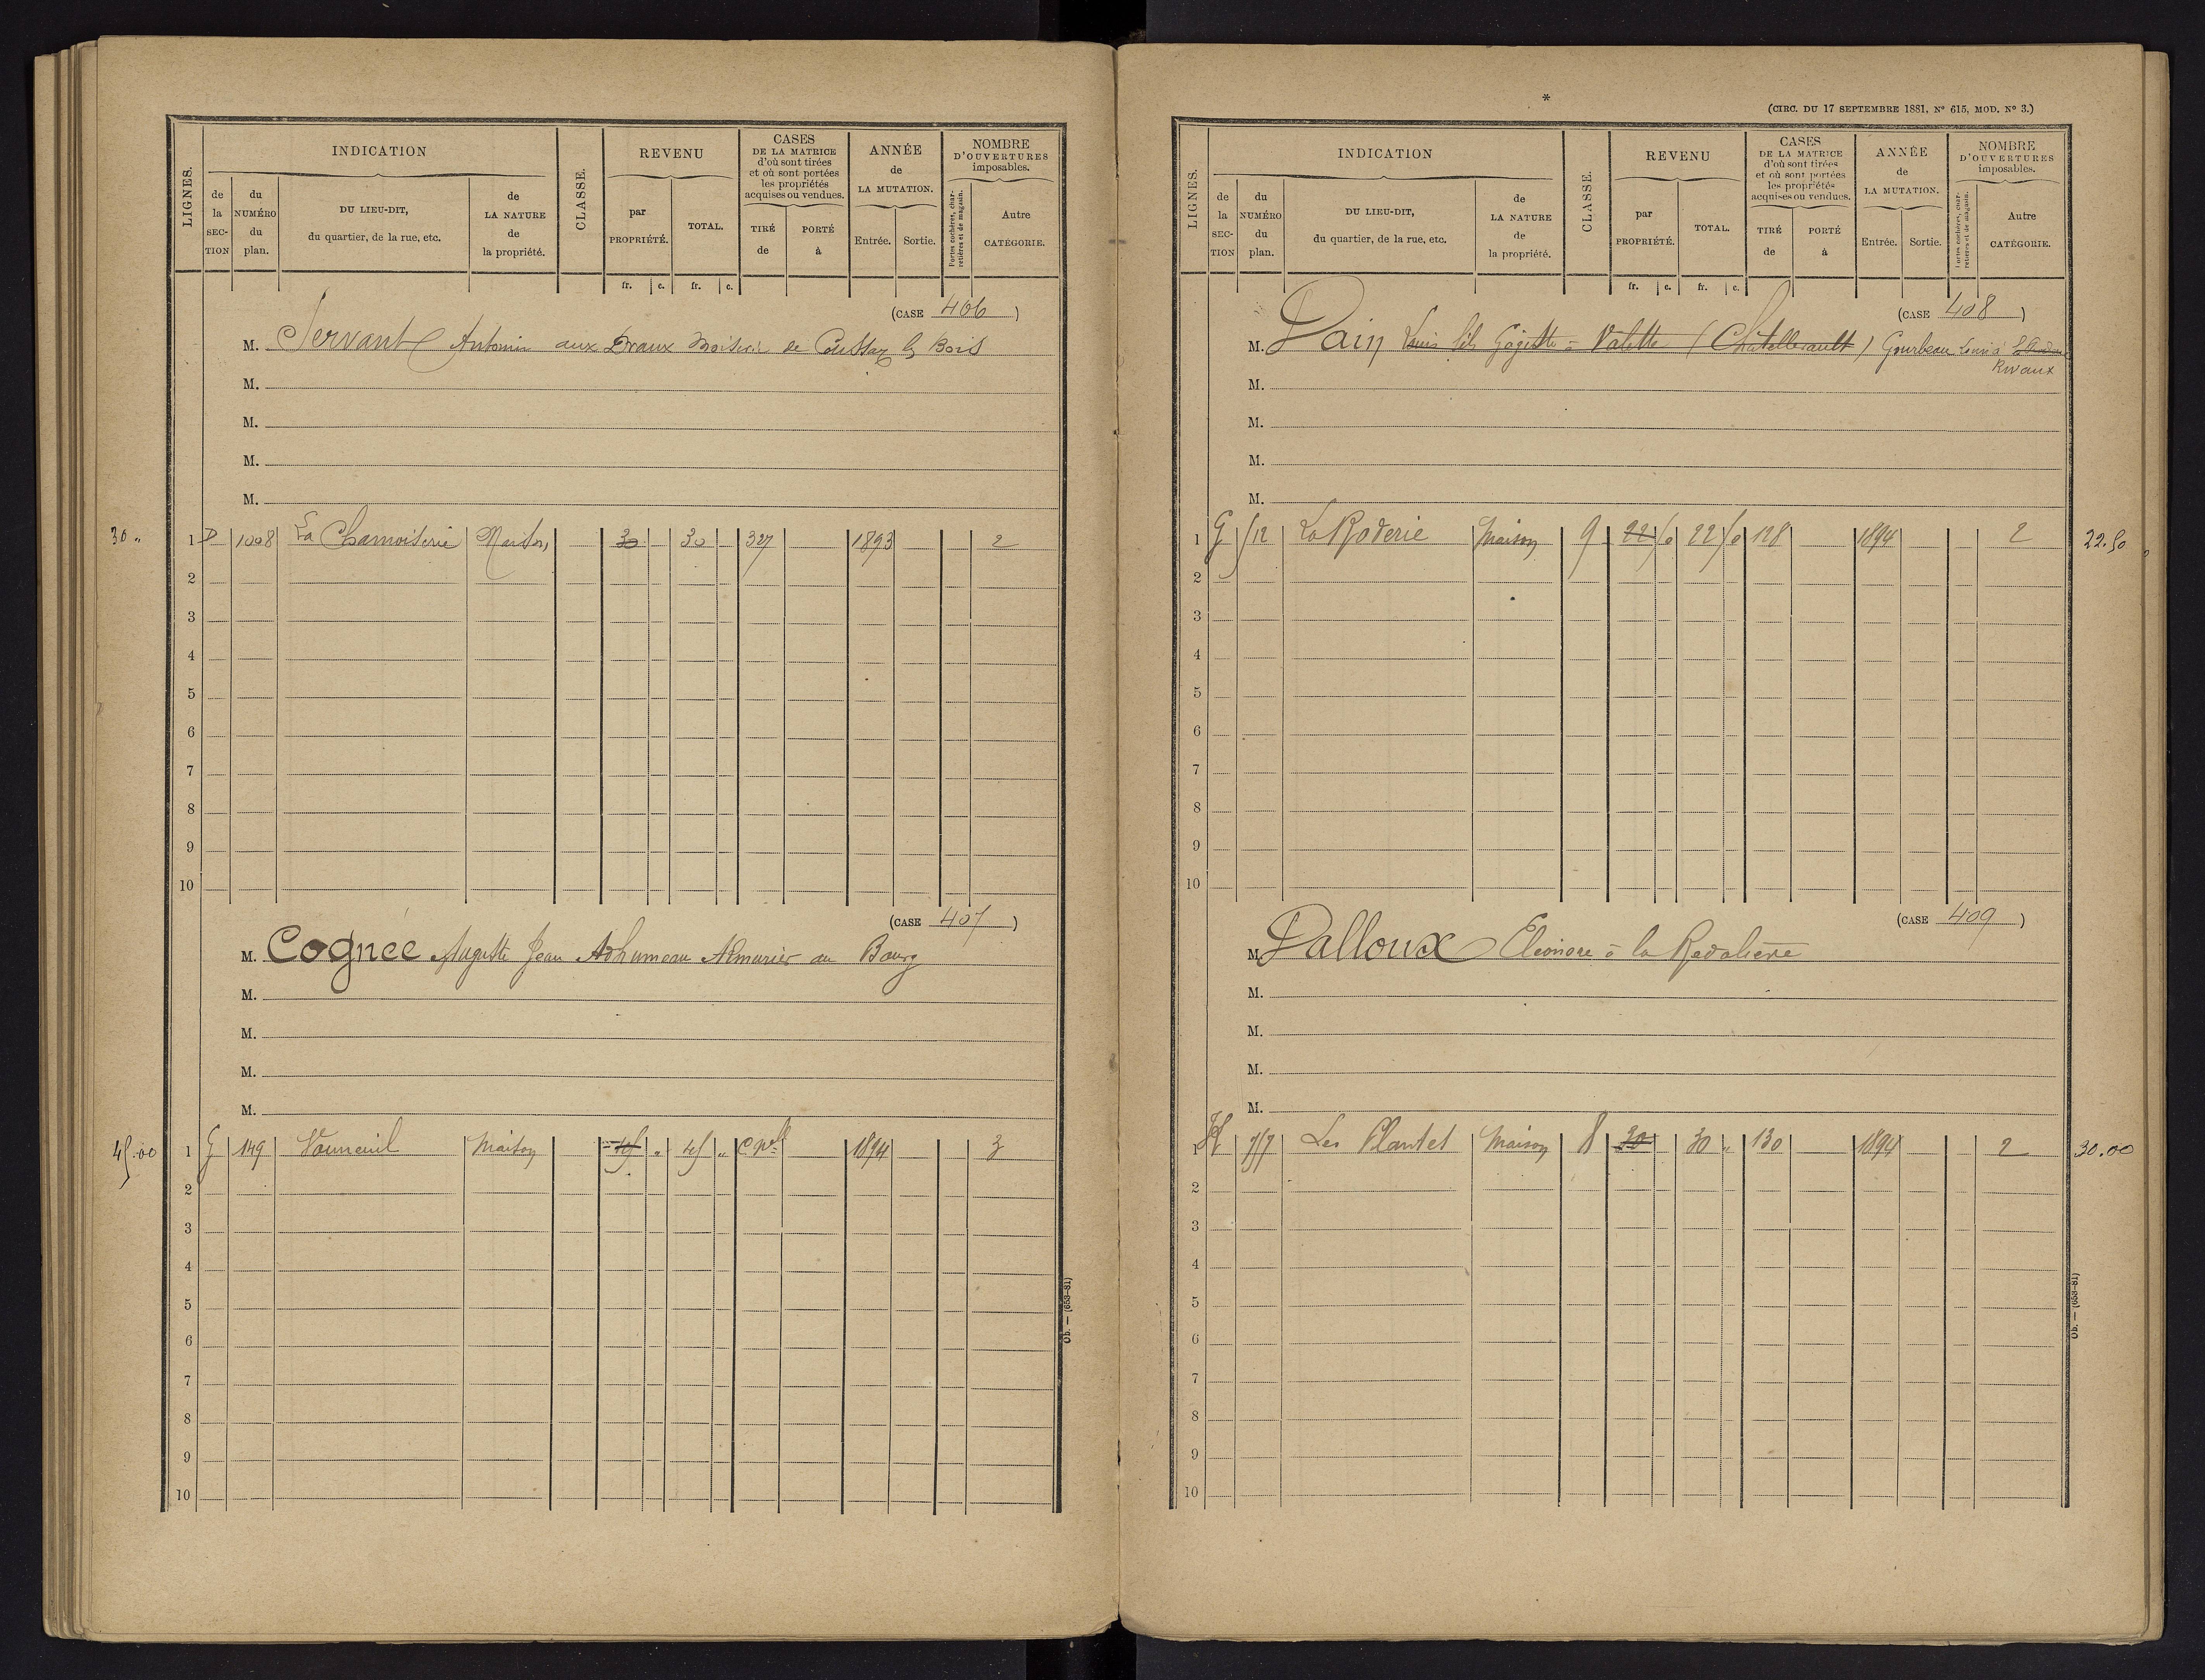 LIGNES. INDICATION CLASSE. REVENU CASES DE LA MATRICE d'où sont tirées et où sont portées les propriétés acquises ou vendues. ANNÉE de LA MUTATION. NOMBRE D'OUVERTURES imposables.
de la SECTION du NUMÉRO du plan. DU LIEU-DIT, du quartier, de la rue, etc. de LA NATURE de la propriété. par PROPRIÉTÉ. TOTAL. TIRÉ de PORTÉ à Entrée. Sortie. Portes cochères, charretières et de magasin. Autre CATÉGORIE.
fr. c. fr. c.
(CASE 406)
M. Servant Antonin aux de Coussay les Bois
M.
M.
M.
M.
30 „ 1 D 1008 La Chamoiserie Maison 30 30 327 1893 2
2
3
4
5
6
7
8
9
10
(CASE 407)
M. Cognée Auguste Jean Adhumeau Armurier au Bourg
M.
M.
M.
M.
45.00 1 G 149 Vouneuil Maison 45 „ 45 „ 1894 3
2
3
4
5
6
7
8
9
10
Ob. — (653-81)
*
(CIRC. DU 17 SEPTEMBRE 1881, N° 615, MOD. N° 3.)
LIGNES. INDICATION CLASSE. REVENU CASES DE LA MATRICE d'où sont tirées et où sont portées les propriétés acquises ou vendues. ANNÉE de LA MUTATION. NOMBRE D'OUVERTURES imposables.
de la SECTION du NUMÉRO du plan. DU LIEU-DIT, du quartier, de la rue, etc. de LA NATURE de la propriété. par PROPRIÉTÉ. TOTAL. TIRÉ de PORTÉ à Entrée. Sortie. Portes cochères, charretières et de magasin. Autre CATÉGORIE.
fr. c. fr. c.
(CASE 408)
M. Pain Louis fils à Valette (Chatellerault) Gourbeau Louis à
Rivaux
M.
M.
M.
M.
1 G 512 La Roderie Maison 9 22 50 22 50 128 1894 2 22.50
2
3
4
5
6
7
8
9
10
(CASE 409)
M. Palloux Eleonore à la
M.
M.
M.
M.
1 H 757 Les Plantes Maison 8 30 30 „ 130 1894 2 30.00
2
3
4
5
6
7
8
9
10
Ob. — (653-81)